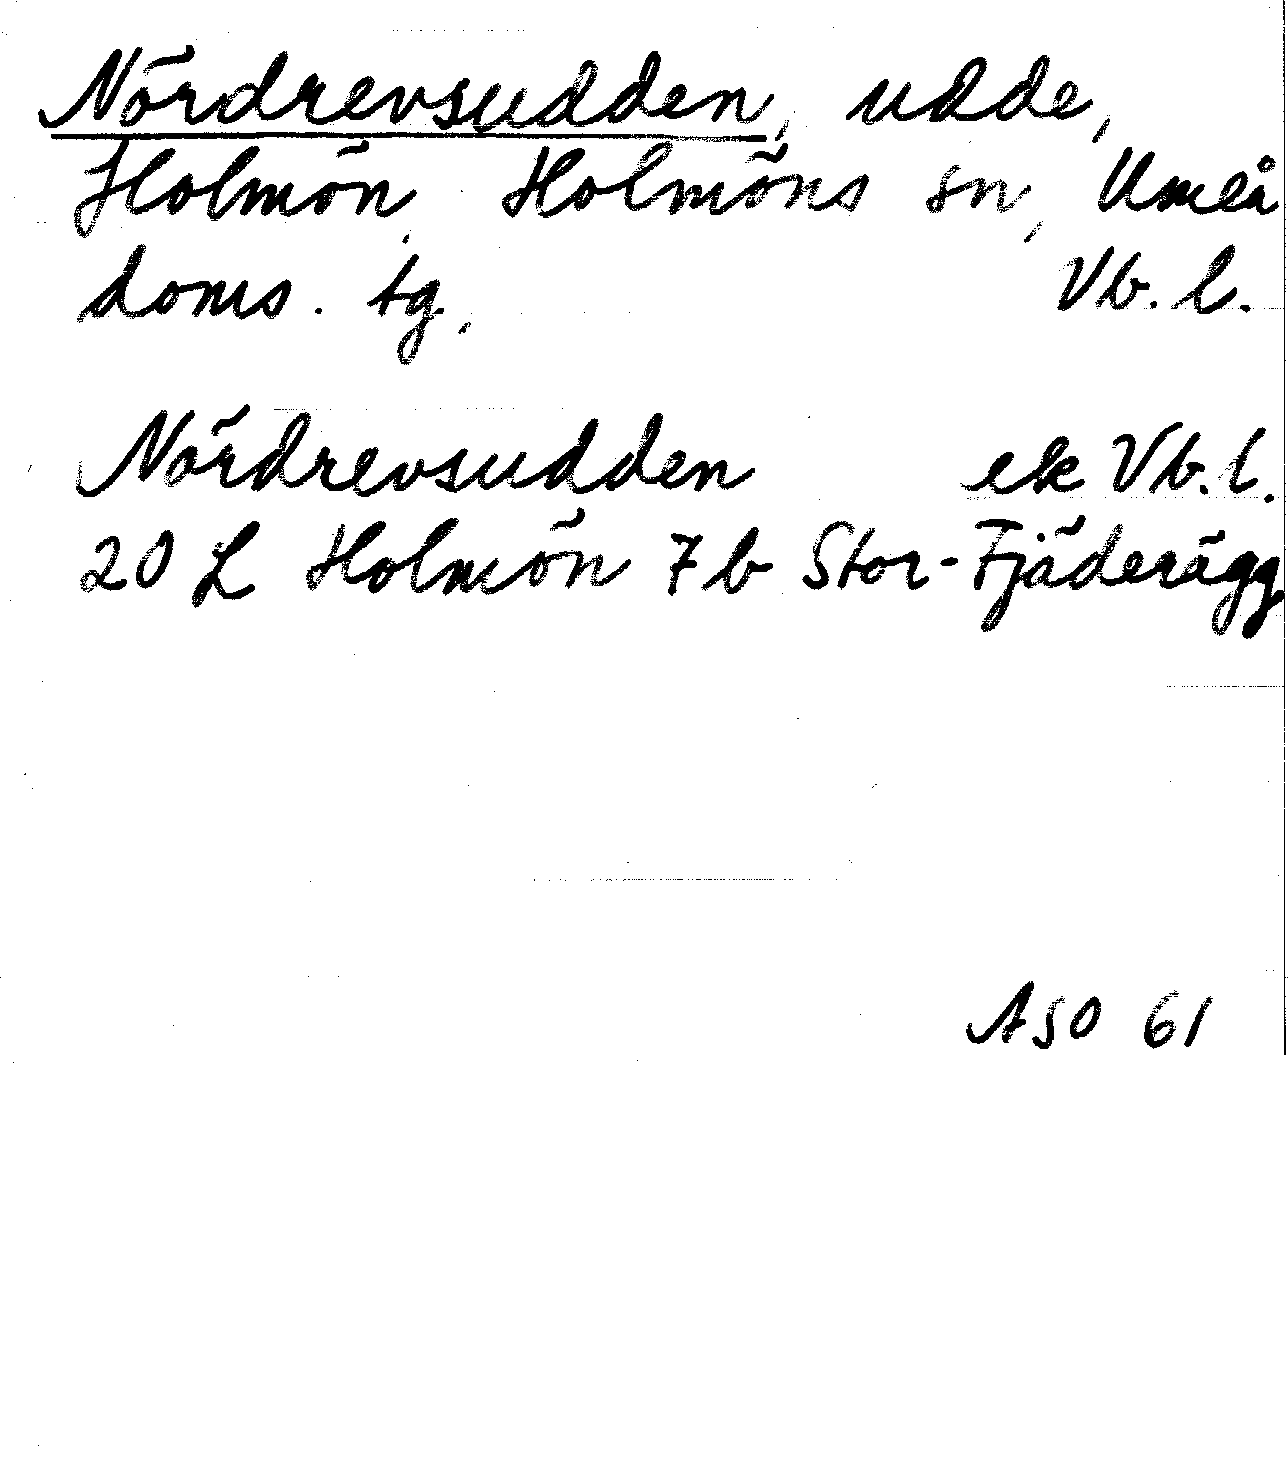 Nördrevsudden, udde,
Holmön, Holmöns sn, Umeå
doms. tg, Vb. l.
Nördrevsudden ek Vb. l.
20 L Holmön 7 b Stor-Fjäderägg
ASO 61